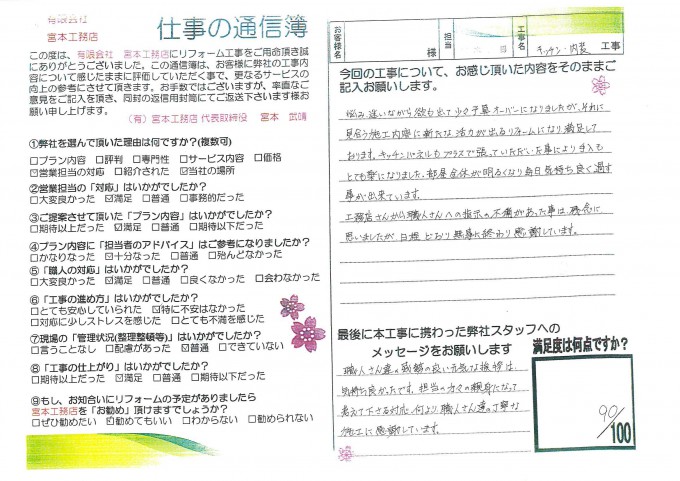 有限会社
宮本工務店
仕事の通信簿
この度は、有限会社 宮本工務店にリフォーム工事をご用命頂き誠
にありがとうございました。この通信簿は、お客様に弊社の工事内
容について感じたままに評価していただく事で、更なるサービスの
向上の参考にさせて頂きます。お手数ではございますが、率直なご
意見をご記入を頂き、同封の返信用封筒にてご返送下さいます様お
願い申し上げます。
(有)宮本工務店 代表取締役 宮本 武晴
①弊社を選んで頂いた理由は何ですか?(複数可)
□プラン内容 □評判 □専門性 □サービス内容 □価格
☑営業担当の対応 □紹介された ☑当社の場所
②営業担当の「対応」はいかがでしたか?
□大変良かった ☑満足 □普通 □事務的だった
③ご提案させて頂いた「プラン内容」はいかがでしたか?
□期待以上だった ☑満足 □普通 □期待以下だった
④プラン内容に「担当者のアドバイス」はご参考になりましたか?
□かなりなった ☑十分なった □普通 □殆んどなかった
⑤「職人の対応」はいかがでしたか?
□大変良かった ☑満足 □普通 □良くなかった □会わなかった
⑥「工事の進め方」はいかがでしたか?
□とても安心していられた ☑特に不安はなかった
□対応に少しストレスを感じた □とても不満を感じた
⑦現場の「管理状況(整理整頓等)」はいかがでしたか?
□言うことなし □配慮があった ☑普通 □できていない
⑧「工事の仕上がり」はいかがでしたか?
□期待以上だった ☑満足 □普通 □期待以下だった
⑨もし、お知合いにリフォームの予定がありましたら
宮本工務店を「お勧め」頂けますでしょうか?
□ぜひ勧めたい ☑勧めてもいい □わからない □勧められない
お客様名 様 担当 工事名 キッチン・内装 工事
今回の工事について、お感じ頂いた内容をそのままご
記入お願いします。
悩み迷いながら欲も出て少々予算オーバーになりましたが、それに
見合う施工内容に新たな活力が出るリフォームになり満足して
おります。キッチンパネルもプラスで張っていただいた事により手入も
とても楽になりました。部屋全体が明るくなり毎日気持ち良く過す
事が出来ています。
工務店さんから職人さんへの指示の不備があった事は、残念に
思いましたが 日程どおり無事に終わり感謝しています。
最後に本工事に携わった弊社スタッフへの
メッセージをお願いします
職人さん達の感じの良い元気な挨拶は
気持ち良かったです。担当の方々の親身になって
考えて下さる対応・何より職人さん達の丁寧な
施工に感動しています。
満足度は何点ですか?
90/100